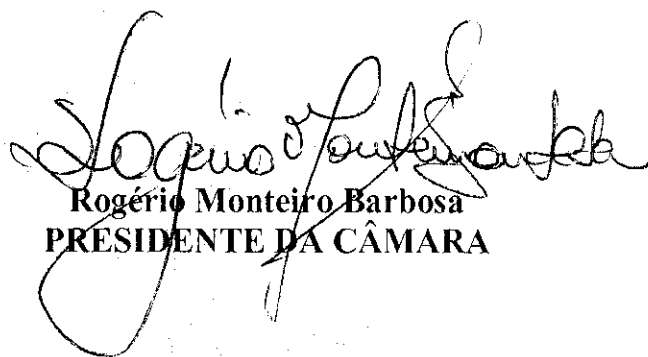 Rogério Monteiro Barbosa
PRESIDENTE DA CÂMARA